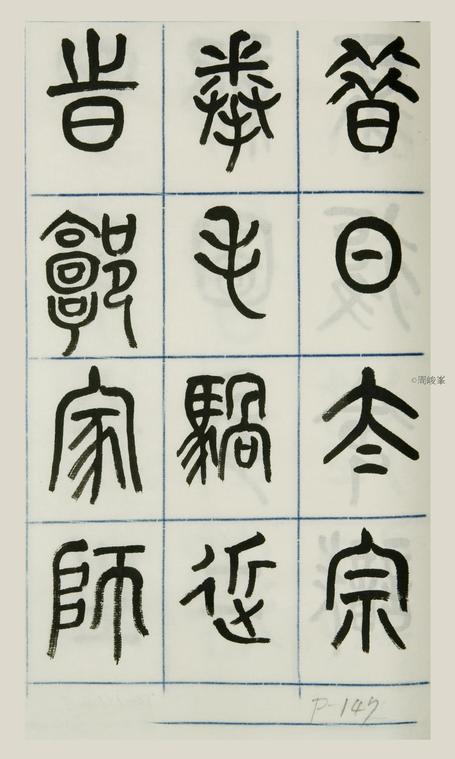 昔日太宗
拳毛騧近
旹郭家師
P-147
©周峻峯